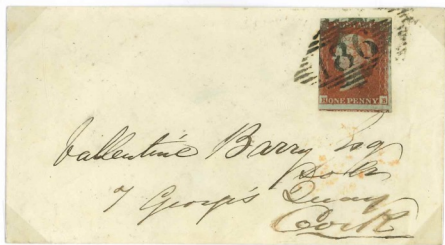 186
ONE PENNY
Vallentine Barry Esq
7 George's Quay
Cork